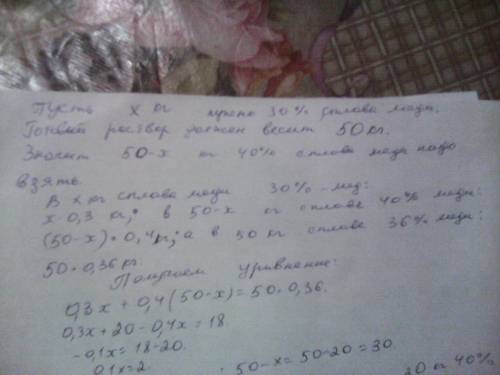 Пусть х кг нужно 30% сплава меди.
Готовый раствор должен весит 50 кг.
Значит 50-х кг 40% сплава меди надо
взять.
В х кг сплава меди 30%-мед:
х·0,3 кг; в 50-х кг сплаве 40% меди:
(50-х)·0,4кг; а в 50 кг сплаве 36% меди:
50·0,36 кг.
Получаем уравнение:
0,3х + 0,4(50-х)=50·0,36.
0,3х+20-0,4х=18.
-0,1х=18-20.
0,1х=2. 50-х=50-20=30.
кг 40%